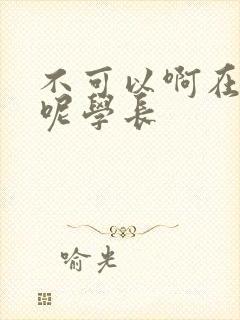 不可以啊在
呢學長
喻光